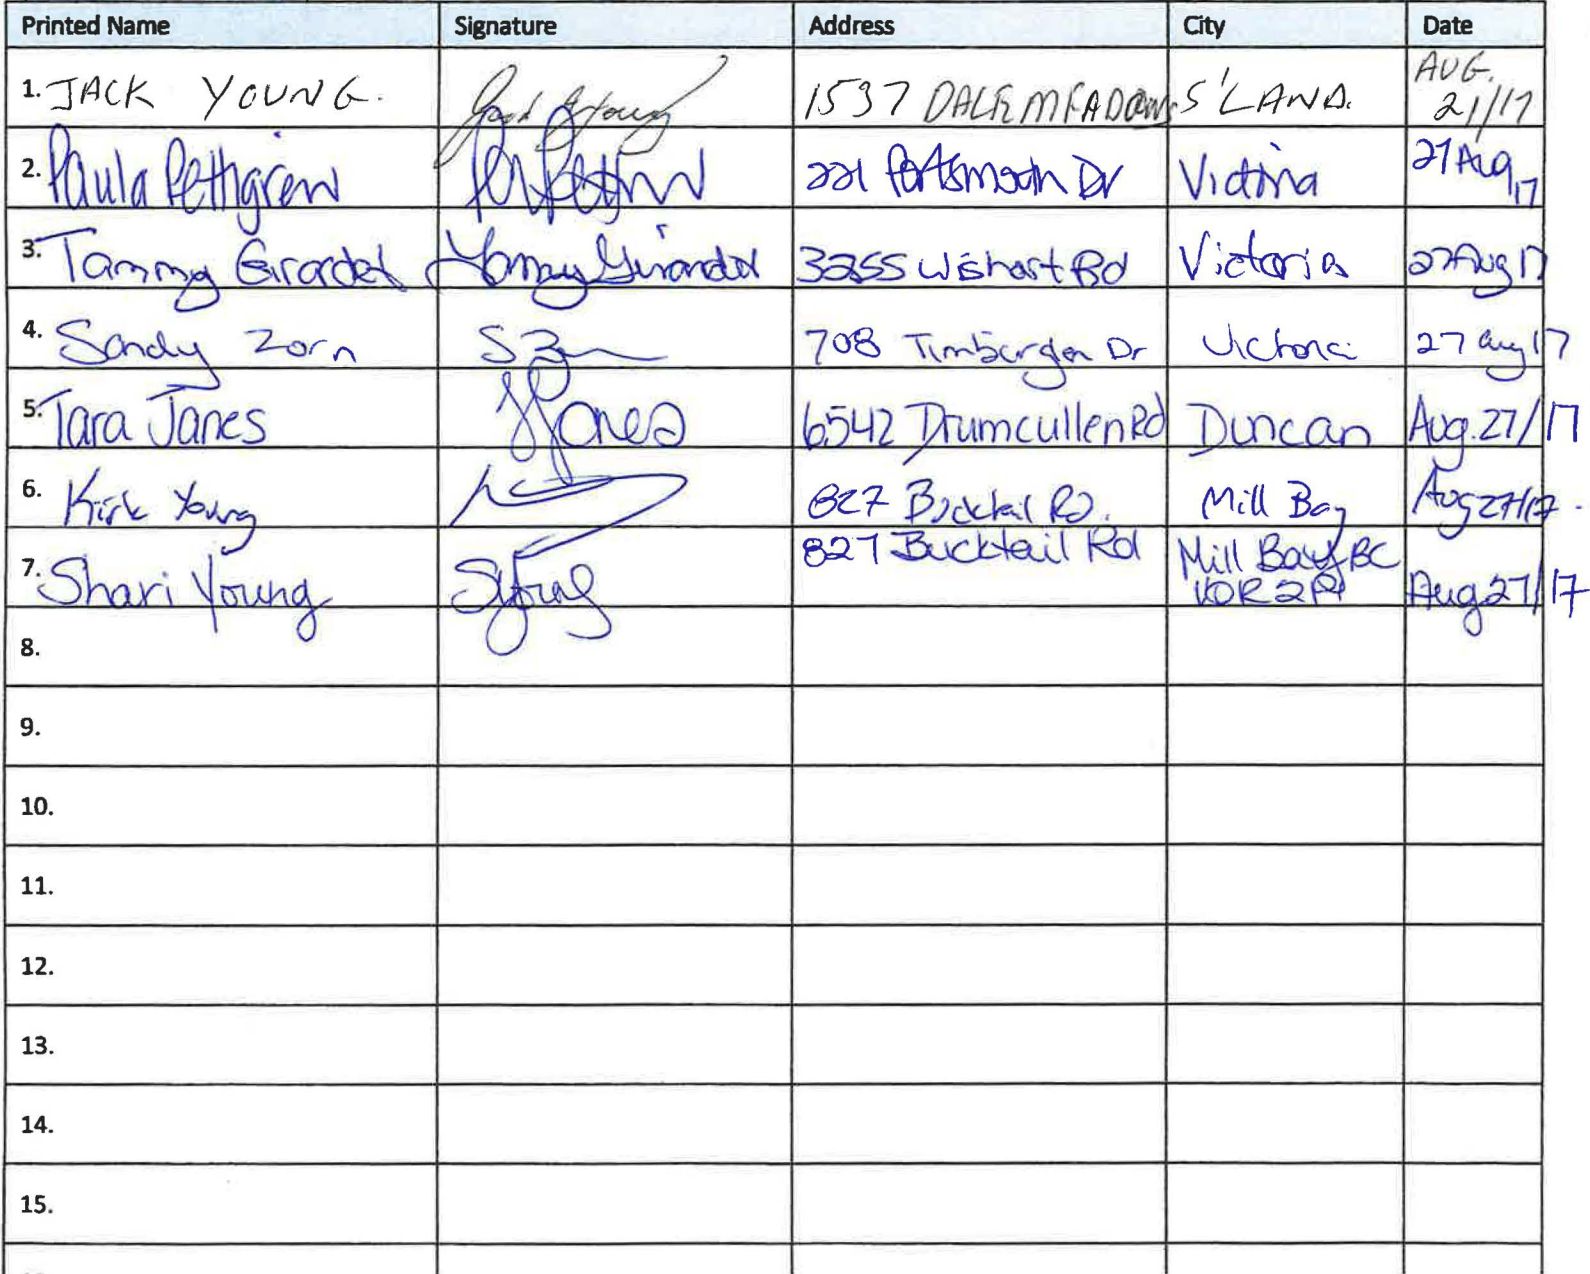 Printed Name Signature Address City Date
1. JACK YOUNG. Jack Young 1537 DALE MEADOWS S'LAND. AUG. 21/17
2. Paula Pettigrew 221 Portsmouth Dr Victoria 27 Aug 17
3. Tammy Girardet Tammy Girardet 3255 Wishart Rd Victoria 27 Aug 17
4. Sandy Zorn 708 Dr Victoria 27 Aug 17
5. Tara Janes 6542 Drumcullen Rd Duncan Aug. 27/17
6. Kirk Young 827 Bucktail Rd. Mill Bay Aug 27/17.
7. Shari Young SYoung 827 Bucktail Rd Mill Bay BC Aug 27/17
8.
9.
10.
11.
12.
13.
14.
15.